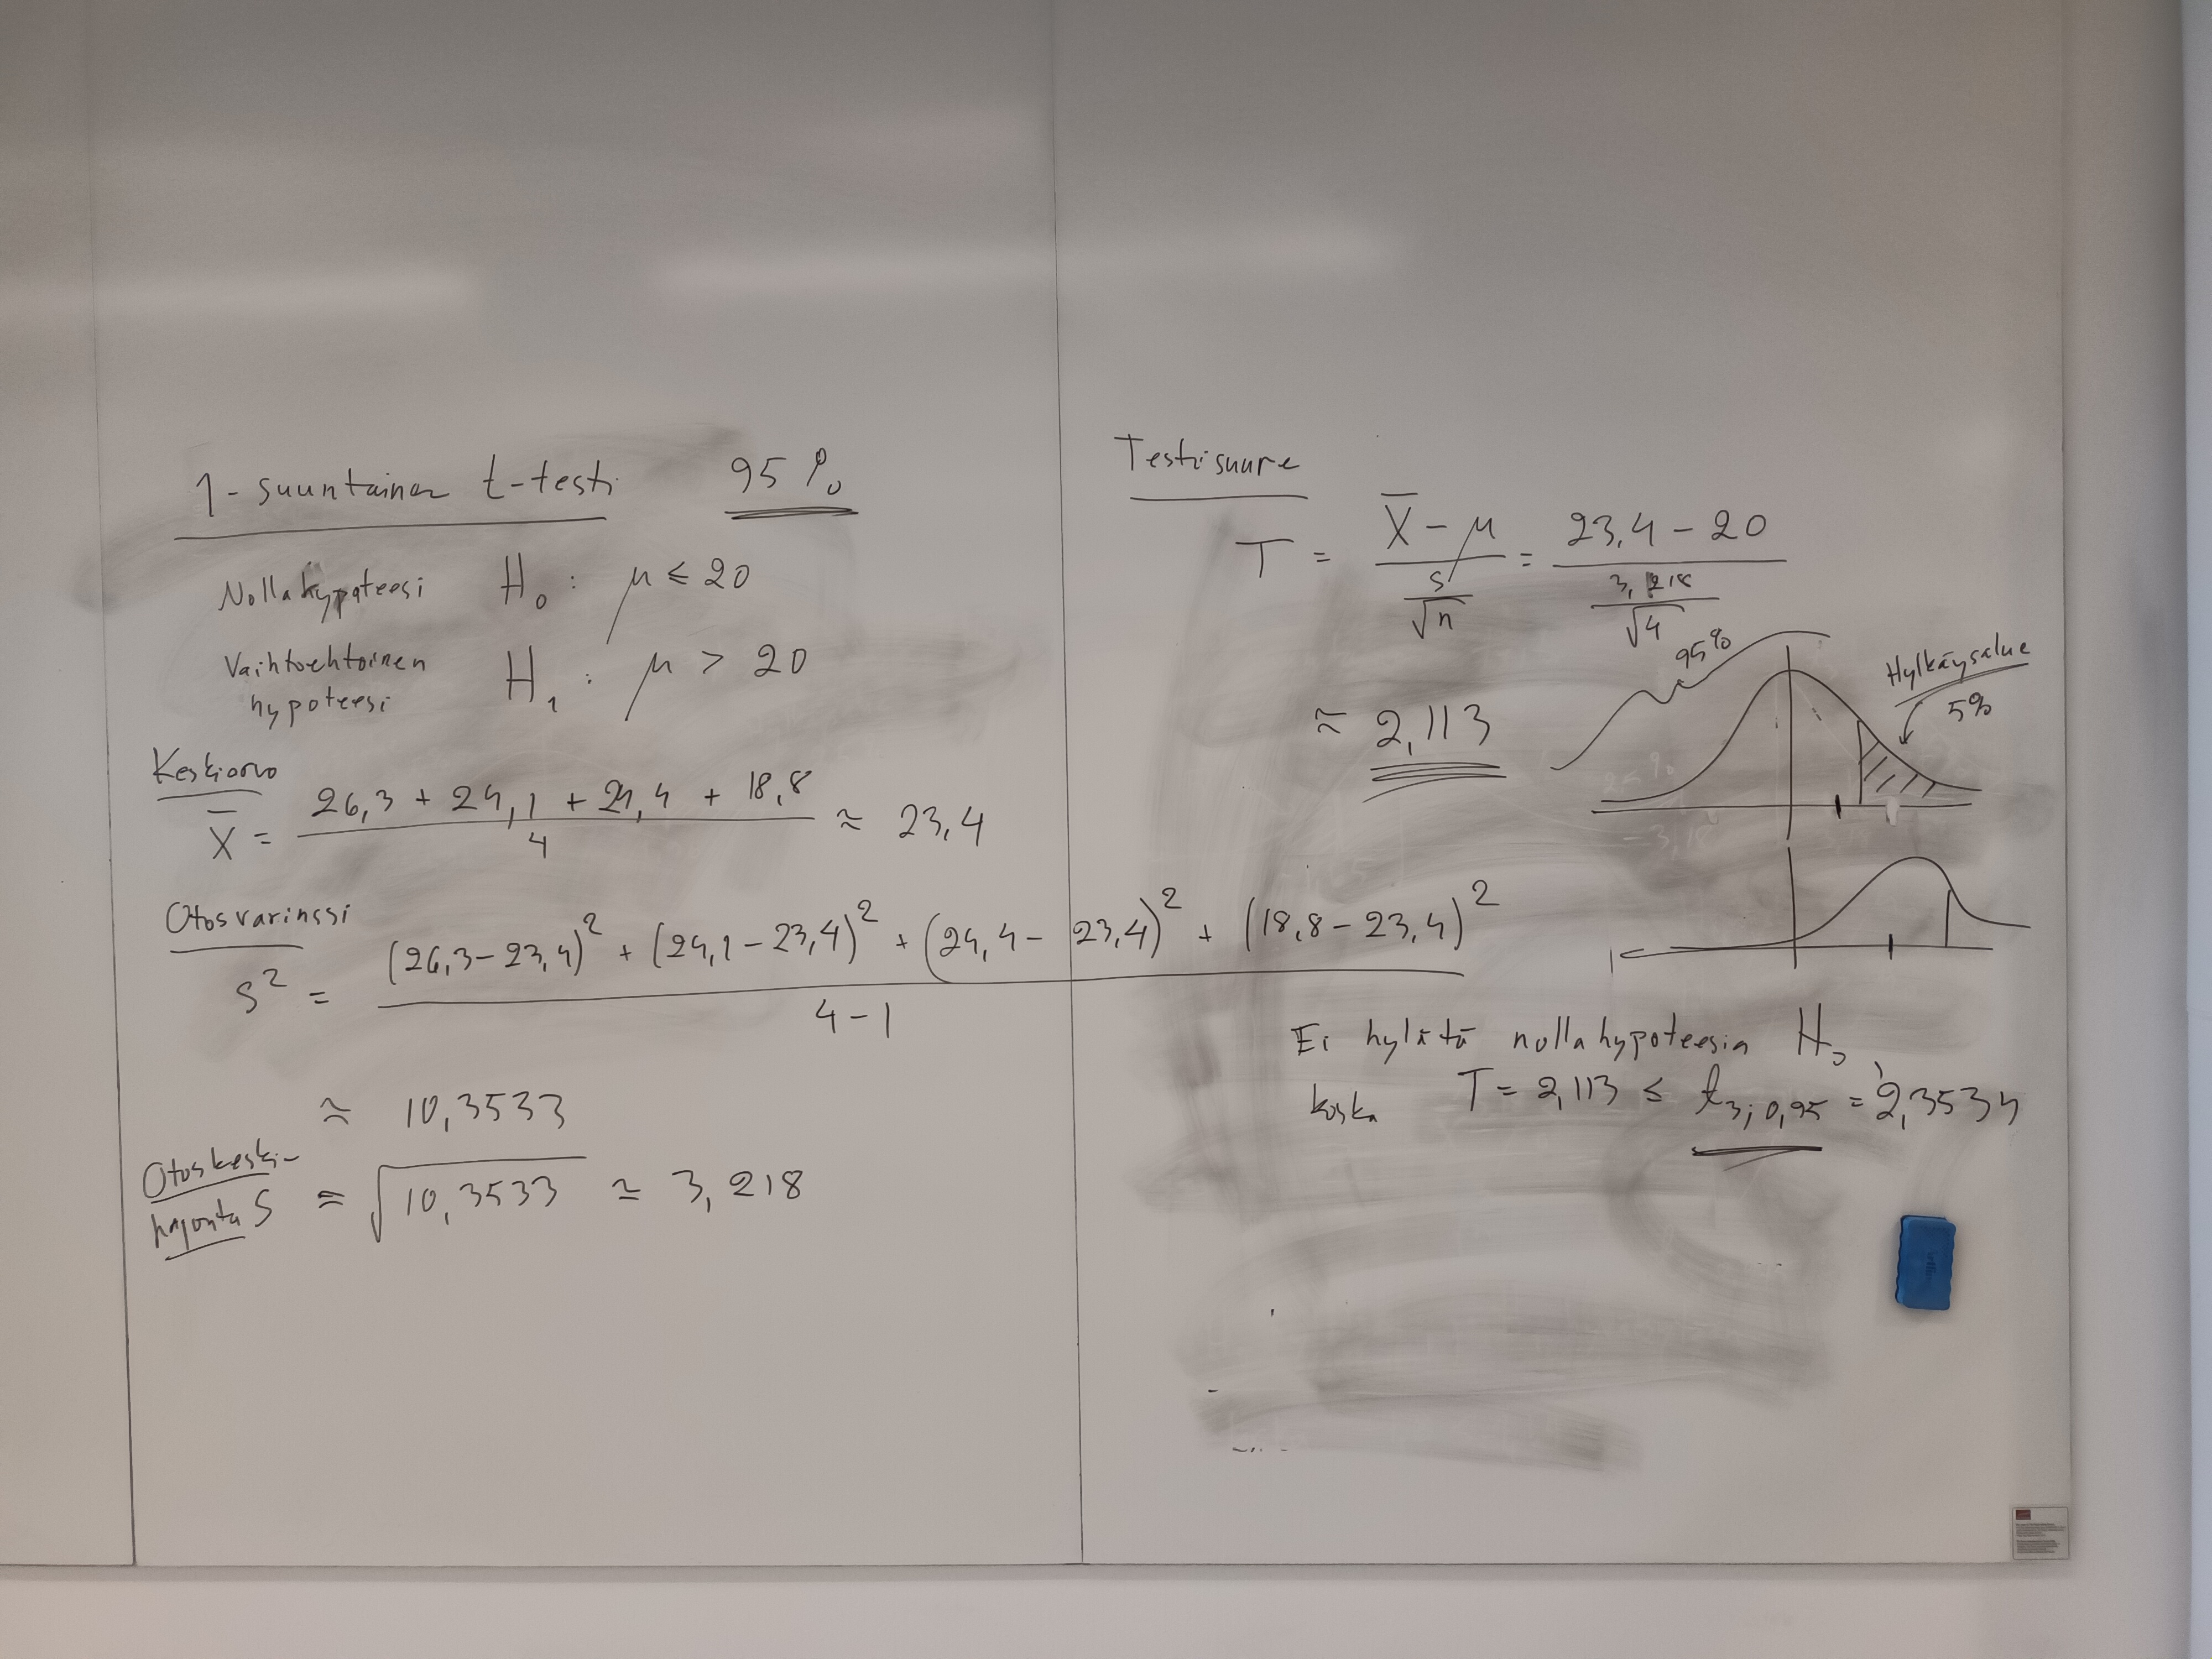 1-suuntainen t-testi 95 %
Nollahypoteesi H₀ : μ ≤ 20
Vaihtoehtoinen
hypoteesi H₁ : μ > 20
Keskiarvo
X̄ = (26,3 + 24,1 + 24,4 + 18,8) / 4 ≈ 23,4
Otosvarinssi
s² = ((26,3 − 23,4)² + (24,1 − 23,4)² + (24,4 − 23,4)² + (18,8 − 23,4)²) / (4 − 1)
≈ 10,3533
Otoskeski-
hajonta S = √10,3533 ≃ 3,218
Testisuure
T = (X̄ − μ) / (s/√n) = (23,4 − 20) / (3,218/√4)
≈ 2,113
95%
Hylkäysalue
5%
Ei hylätä nollahypoteesia H₀,
koska T = 2,113 ≤ t₃;₀,₉₅ = 2,3534